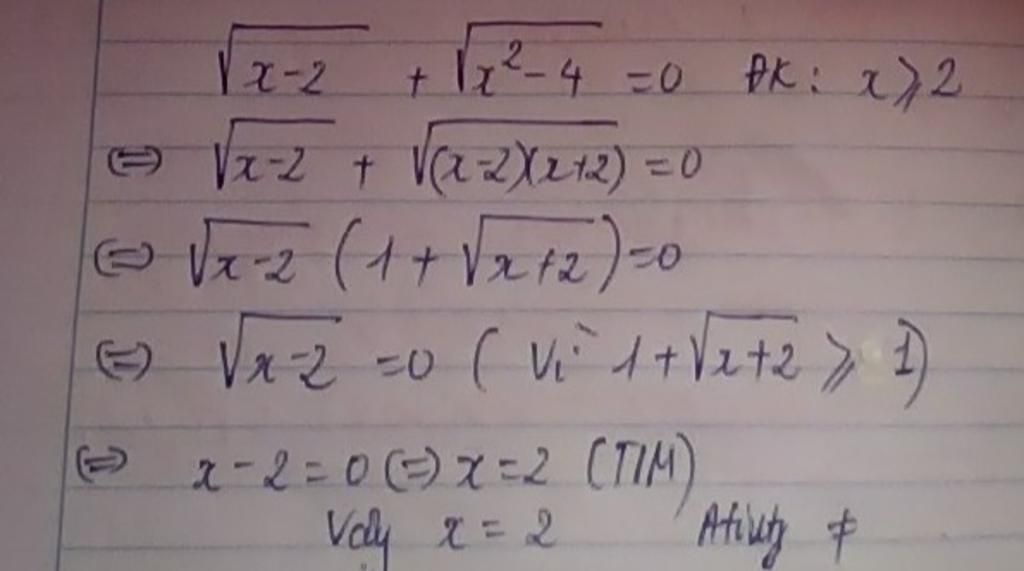 √(x-2) + √(x²-4) =0 ĐK: x ≥ 2
⇔ √(x-2) + √((x-2)(x+2)) =0
⇔ √(x-2) (1+√(x+2))=0
⇔ √(x-2) =0 ( Vì 1+√(x+2) ≥ 1)
⇔ x-2=0 ⇔ x=2 (T/M)
Vậy x = 2